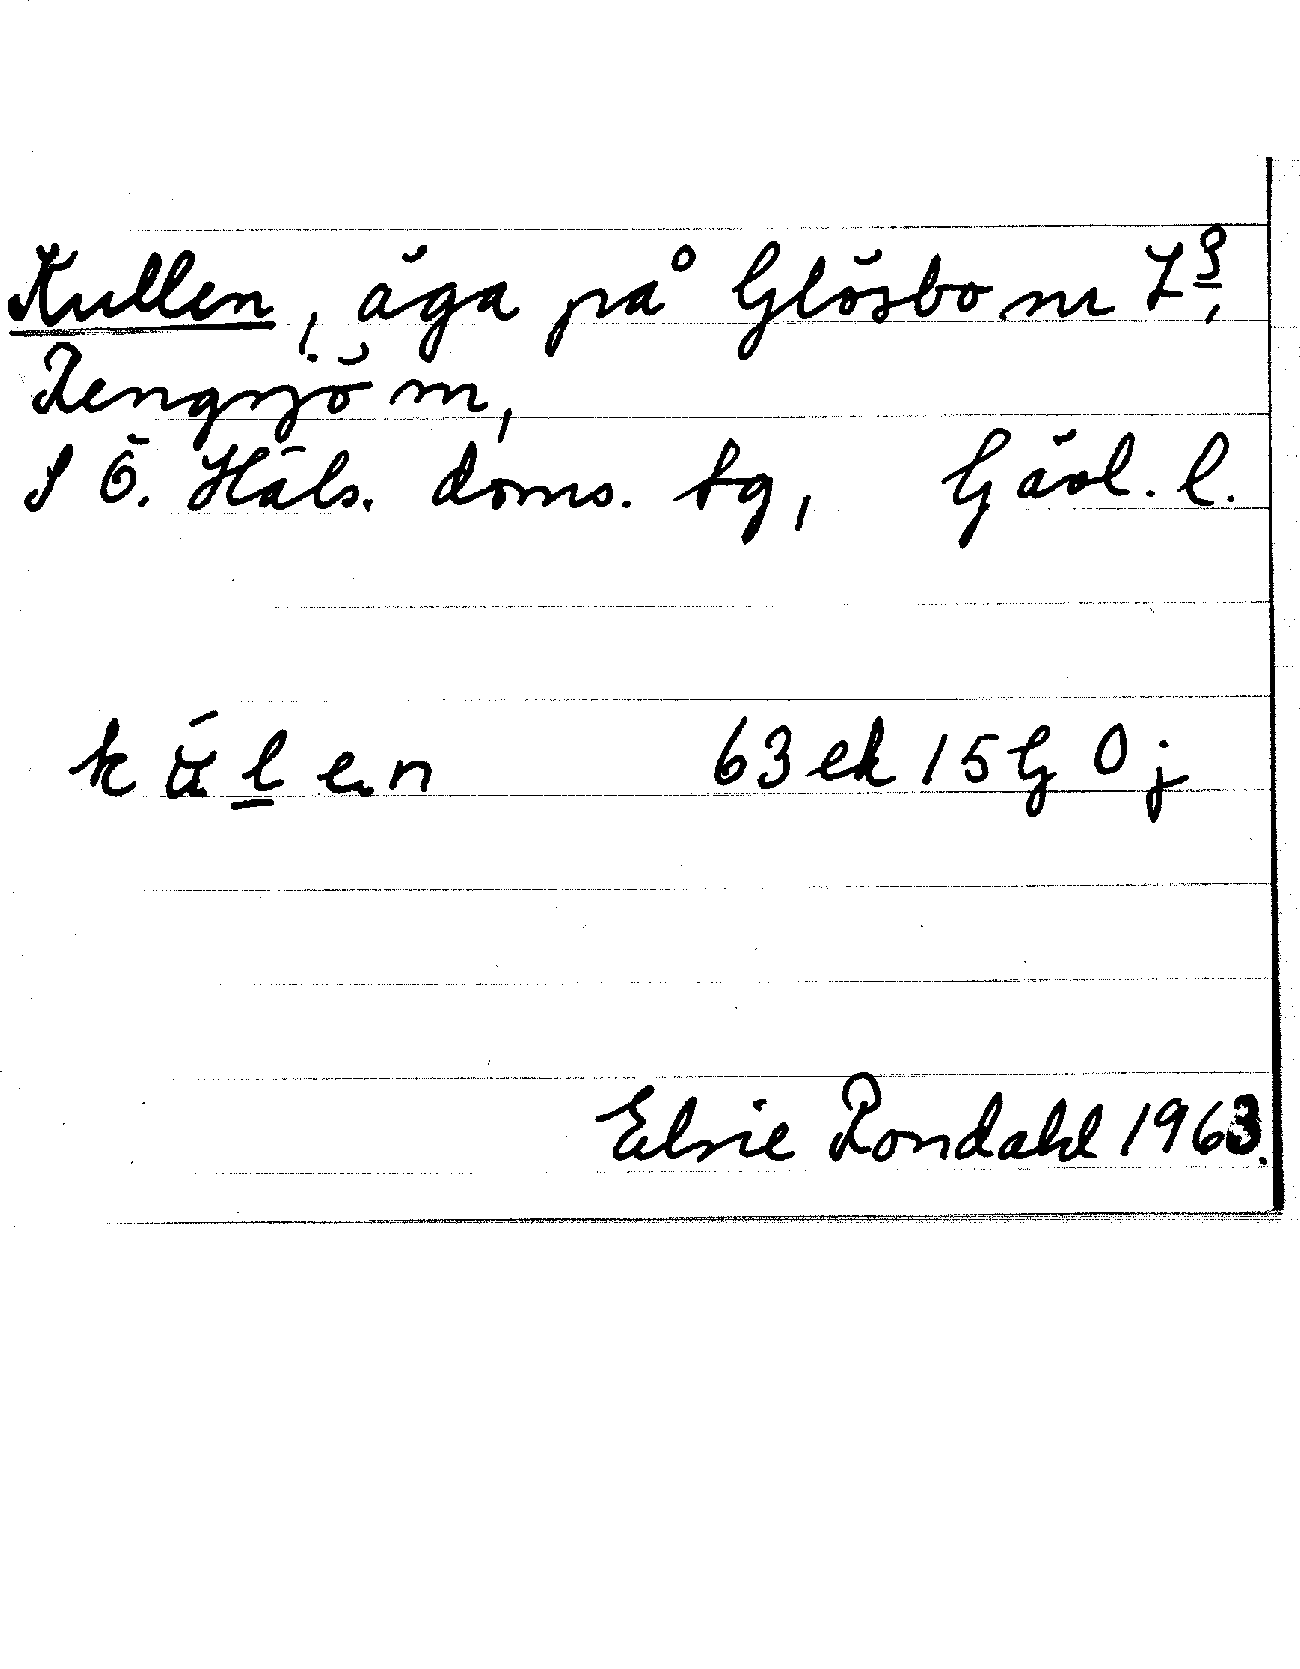 Kullen, äga på Glösbo nr 7⁹,
Rengsjö sn,
S Ö. Häls. doms. tg, Gävl. l.
63 ek 15 G 0 j
Elsie Rondahl 1963.